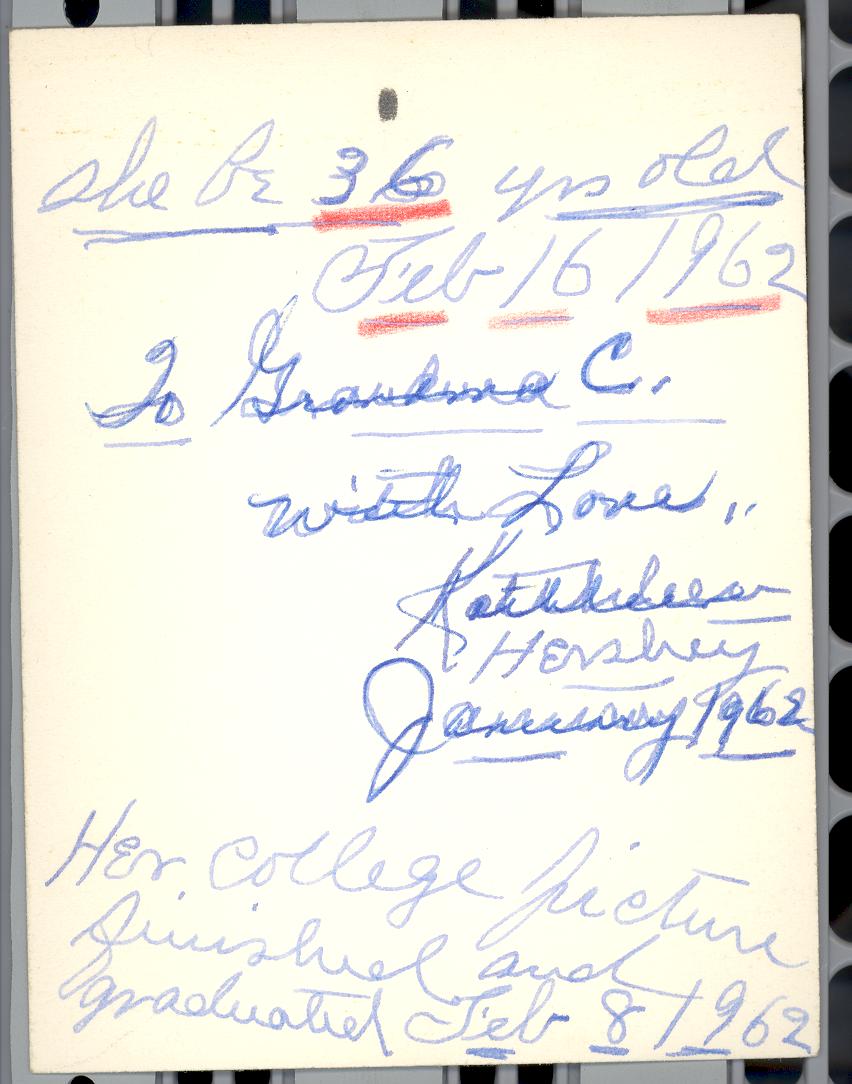 she be 36 yrs old
Feb 16 1962
To Grandma C.
with Love,,
Kathleen
Hershey
January 1962
Her college picture
finished and
graduated Feb 8 1962